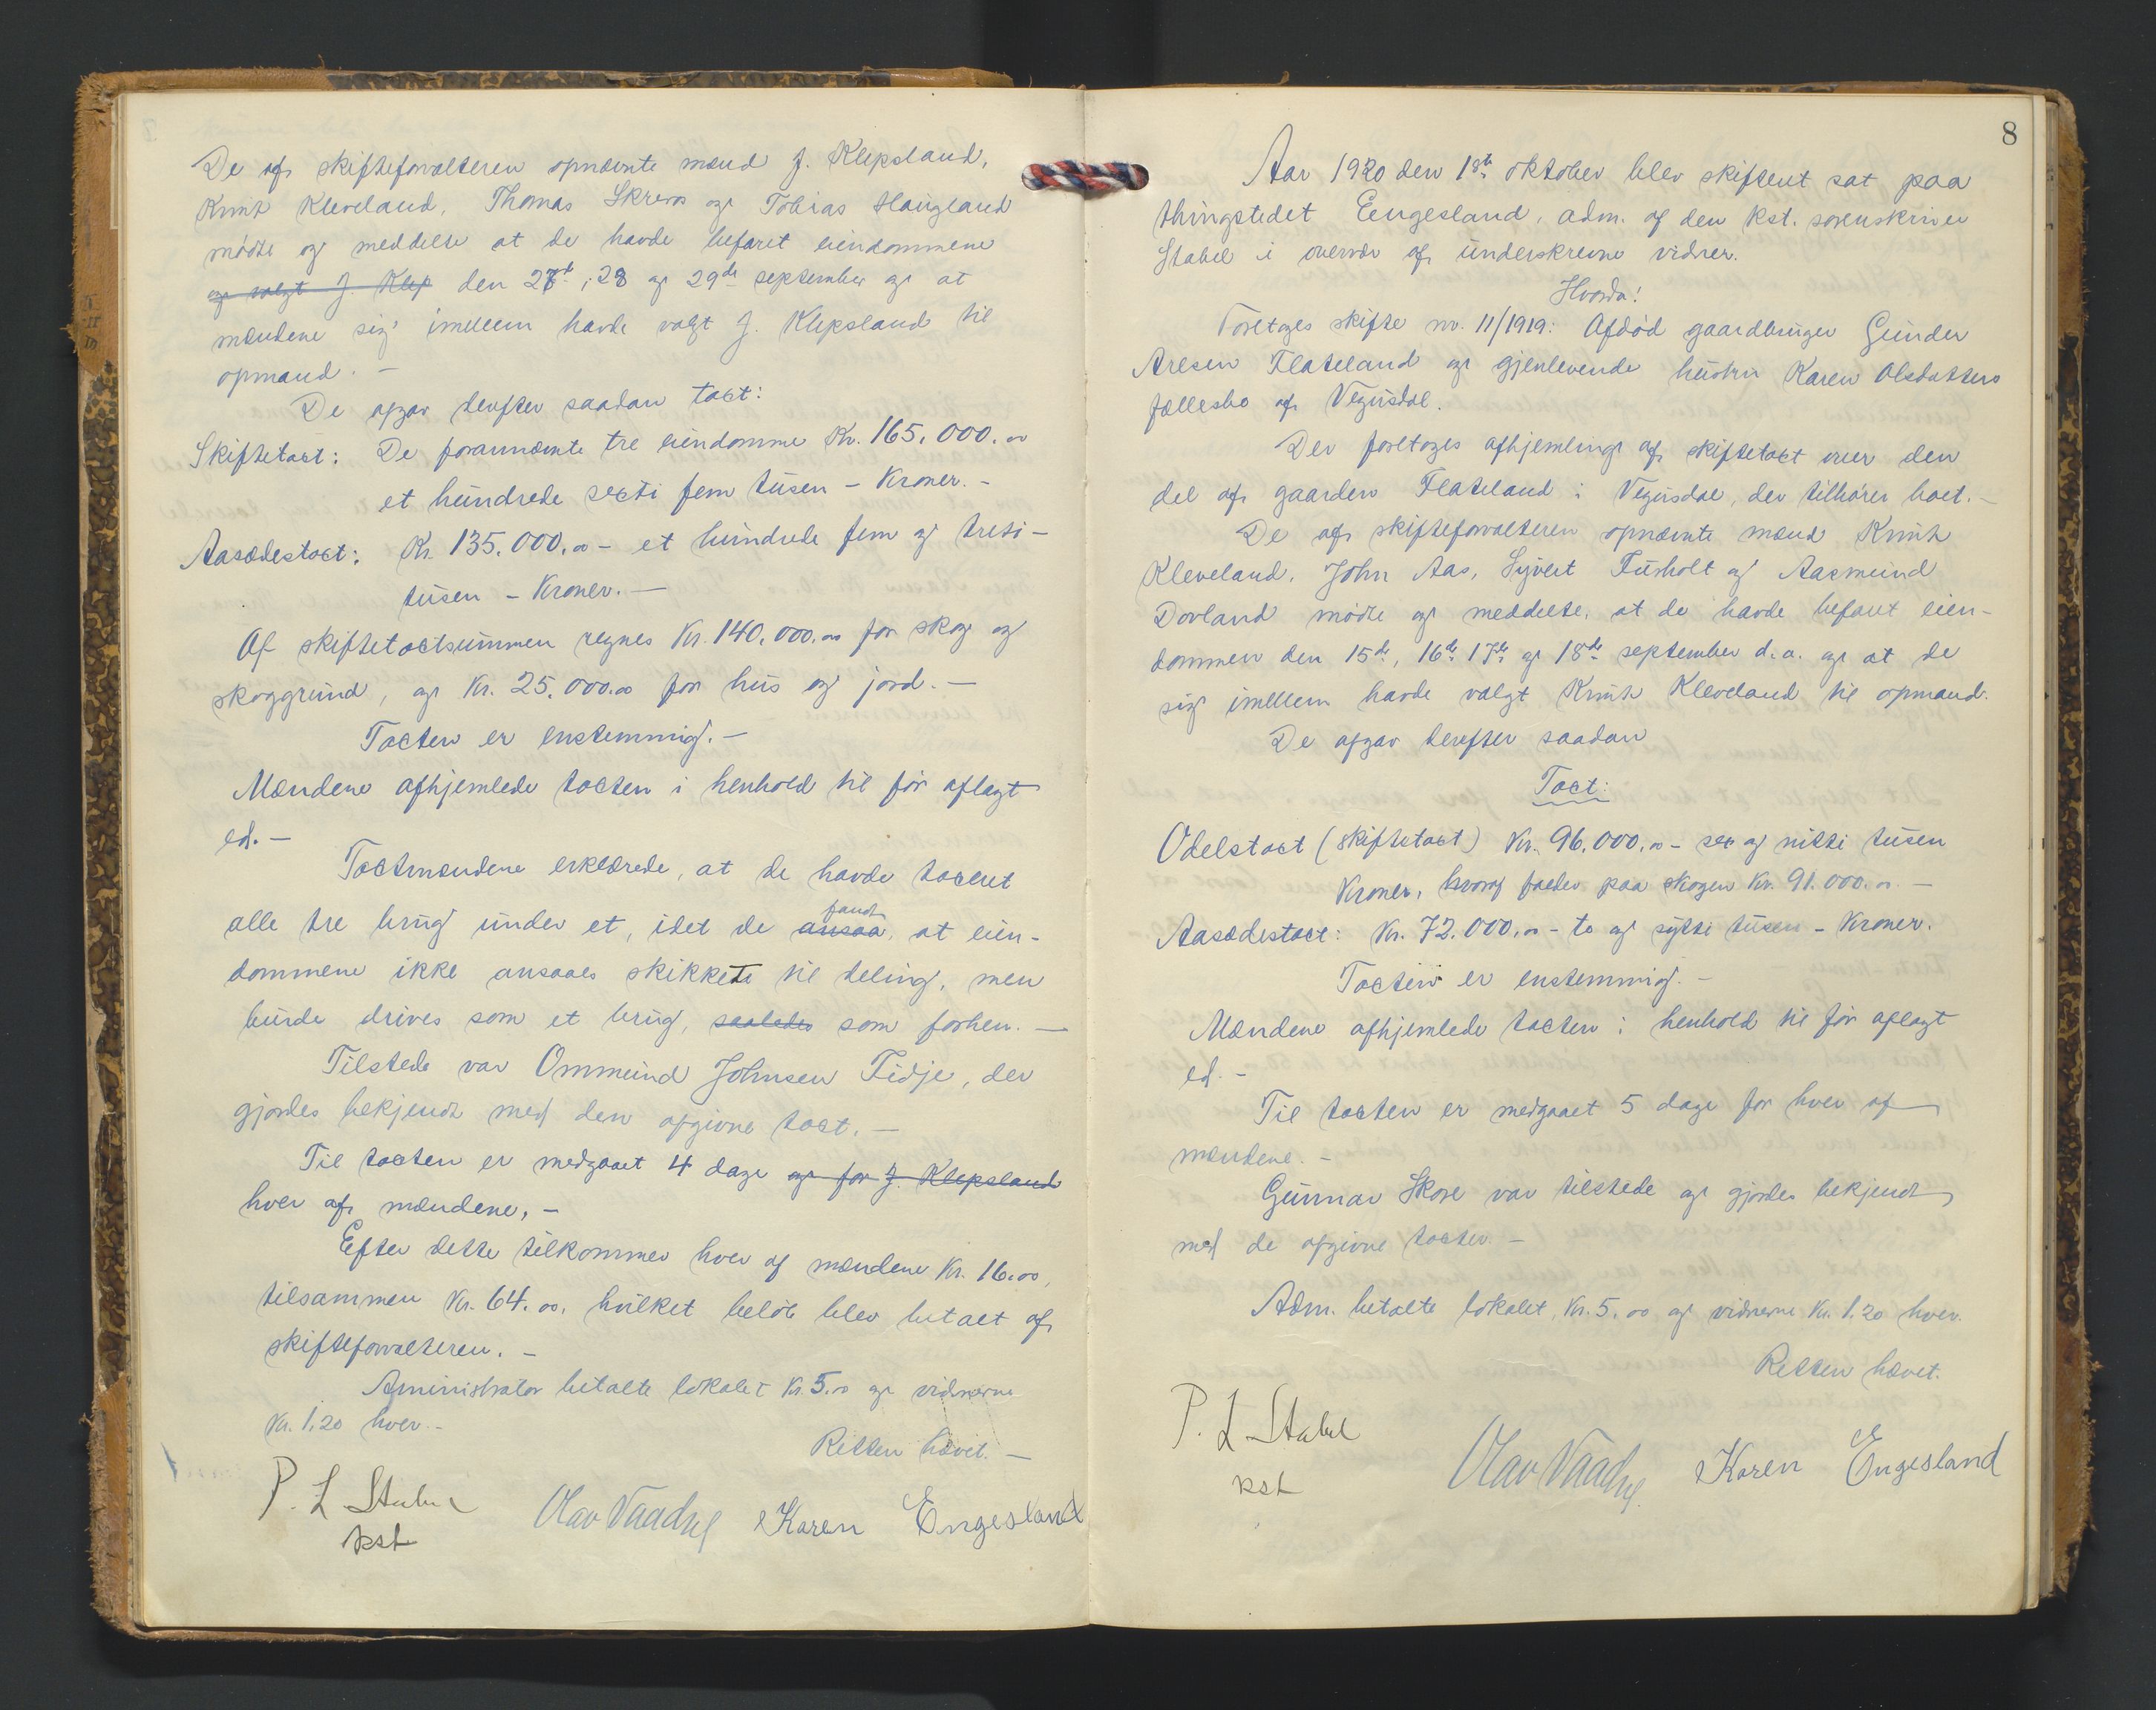 De af skifteforvalteren opnævnte mænd J. Klepsland,
Knut Kleveland, Thomas Skreros og Tobias Haugland
mødte og meddelte at de havde befaret eiendommene
og valgt J. Klep den 27de, 28 og 29de september og at
mændene sig imellem havde valgt J. Klepsland til
opmand. —
De afgav derefter saadan taxt:
Skiftetaxt: De forannævnte tre eiendomme Kr. 165.000.00
et hundrede sexti fem tusen – Kroner. –
Aasædestaxt: Kr. 135.000.00 – et hundrede fem og treti –
tusen – Kroner. —
Af skiftetaxtsummen regnes Kr. 140.000.00 for skog og
skoggrund, og Kr. 25.000.00 for hus og jord. —
Taxten er enstemmig. —
Mændene afhjemlede taxten i henhold til før aflagt
ed. —
Taxtmændene erklærede, at de havde taxeret
alle tre brug under et, idet de ansaa fandt, at eien-
dommene ikke ansaaes skikkete til deling, men
burde drives som et brug, saaledes som forhen. —
Tilstede var Ommund Johnsen Tidje, der
gjordes bekjendt med den afgivne taxt. —
Til taxten er medgaaet 4 dage og for J. Klepsland
hver af mændene, –
Efter dette tilkommer hver af mændene Kr. 16.00,
tilsammen Kr. 64.00, hvilket beløb blev betalt af
skifteforvalteren. –
Aministrator betalte lokalet Kr. 5.00 og vidnerne
Kr. 1,20 hver. –
Retten hævet. —
P. L Stabel
kst
Olav Vaadne Karen Engesland
8
Aar 1920 den 18de oktober blev skifteret sat paa
thingstedet Eengesland, adm. af den kst. sorenskriver
Stabel i overvær af underskrevne vidner.
Hvorda!
Foretoges skifte nr. 11/1919: Afdød gaardbruger Gunder
Aresen Flateland og gjenlevende hustru Karen Olsdatters
fællesbo af Vegusdal.
Der foretoges afhjemling af skiftetaxt over den
del af gaarden Flateland i Vegusdal, der tilhører boet. –
De af skifteforvalteren opnævnte mænd Knut
Kleveland, John Aas, Syvert Fusholt og Aasmund
Dovland mødte og meddelte, at de havde befaret eien-
dommen den 15de, 16de 17de og 18de september d.a. og at de
sig imellem havde valgt Knut Kleveland til opmand.
De afgav derefter saadan
Taxt:
Odelstaxt (skiftetaxt) Kr. 96.000.00 – sex og nitti tusen
Kroner, hvoraf falder paa skogen Kr. 91.000.00. —
Aasædestaxt: Kr. 72.000.00 – to og sytti tusen – Kroner.
Taxten er enstemmig. –
Mændene afhjemlede taxten i henhold til før aflagt
ed. –
Til taxten er medgaaet 5 dage for hver af
mændene. –
Gunnar Skore var tilstede og gjordes bekjendt
med de afgivne taxter. –
Adm. betalte lokalet, Kr. 5.00 og vidnerne Kr. 1.20 hver.
Retten hævet.
P. L Stabel
kst
Olav Vaadne Karen Engesland